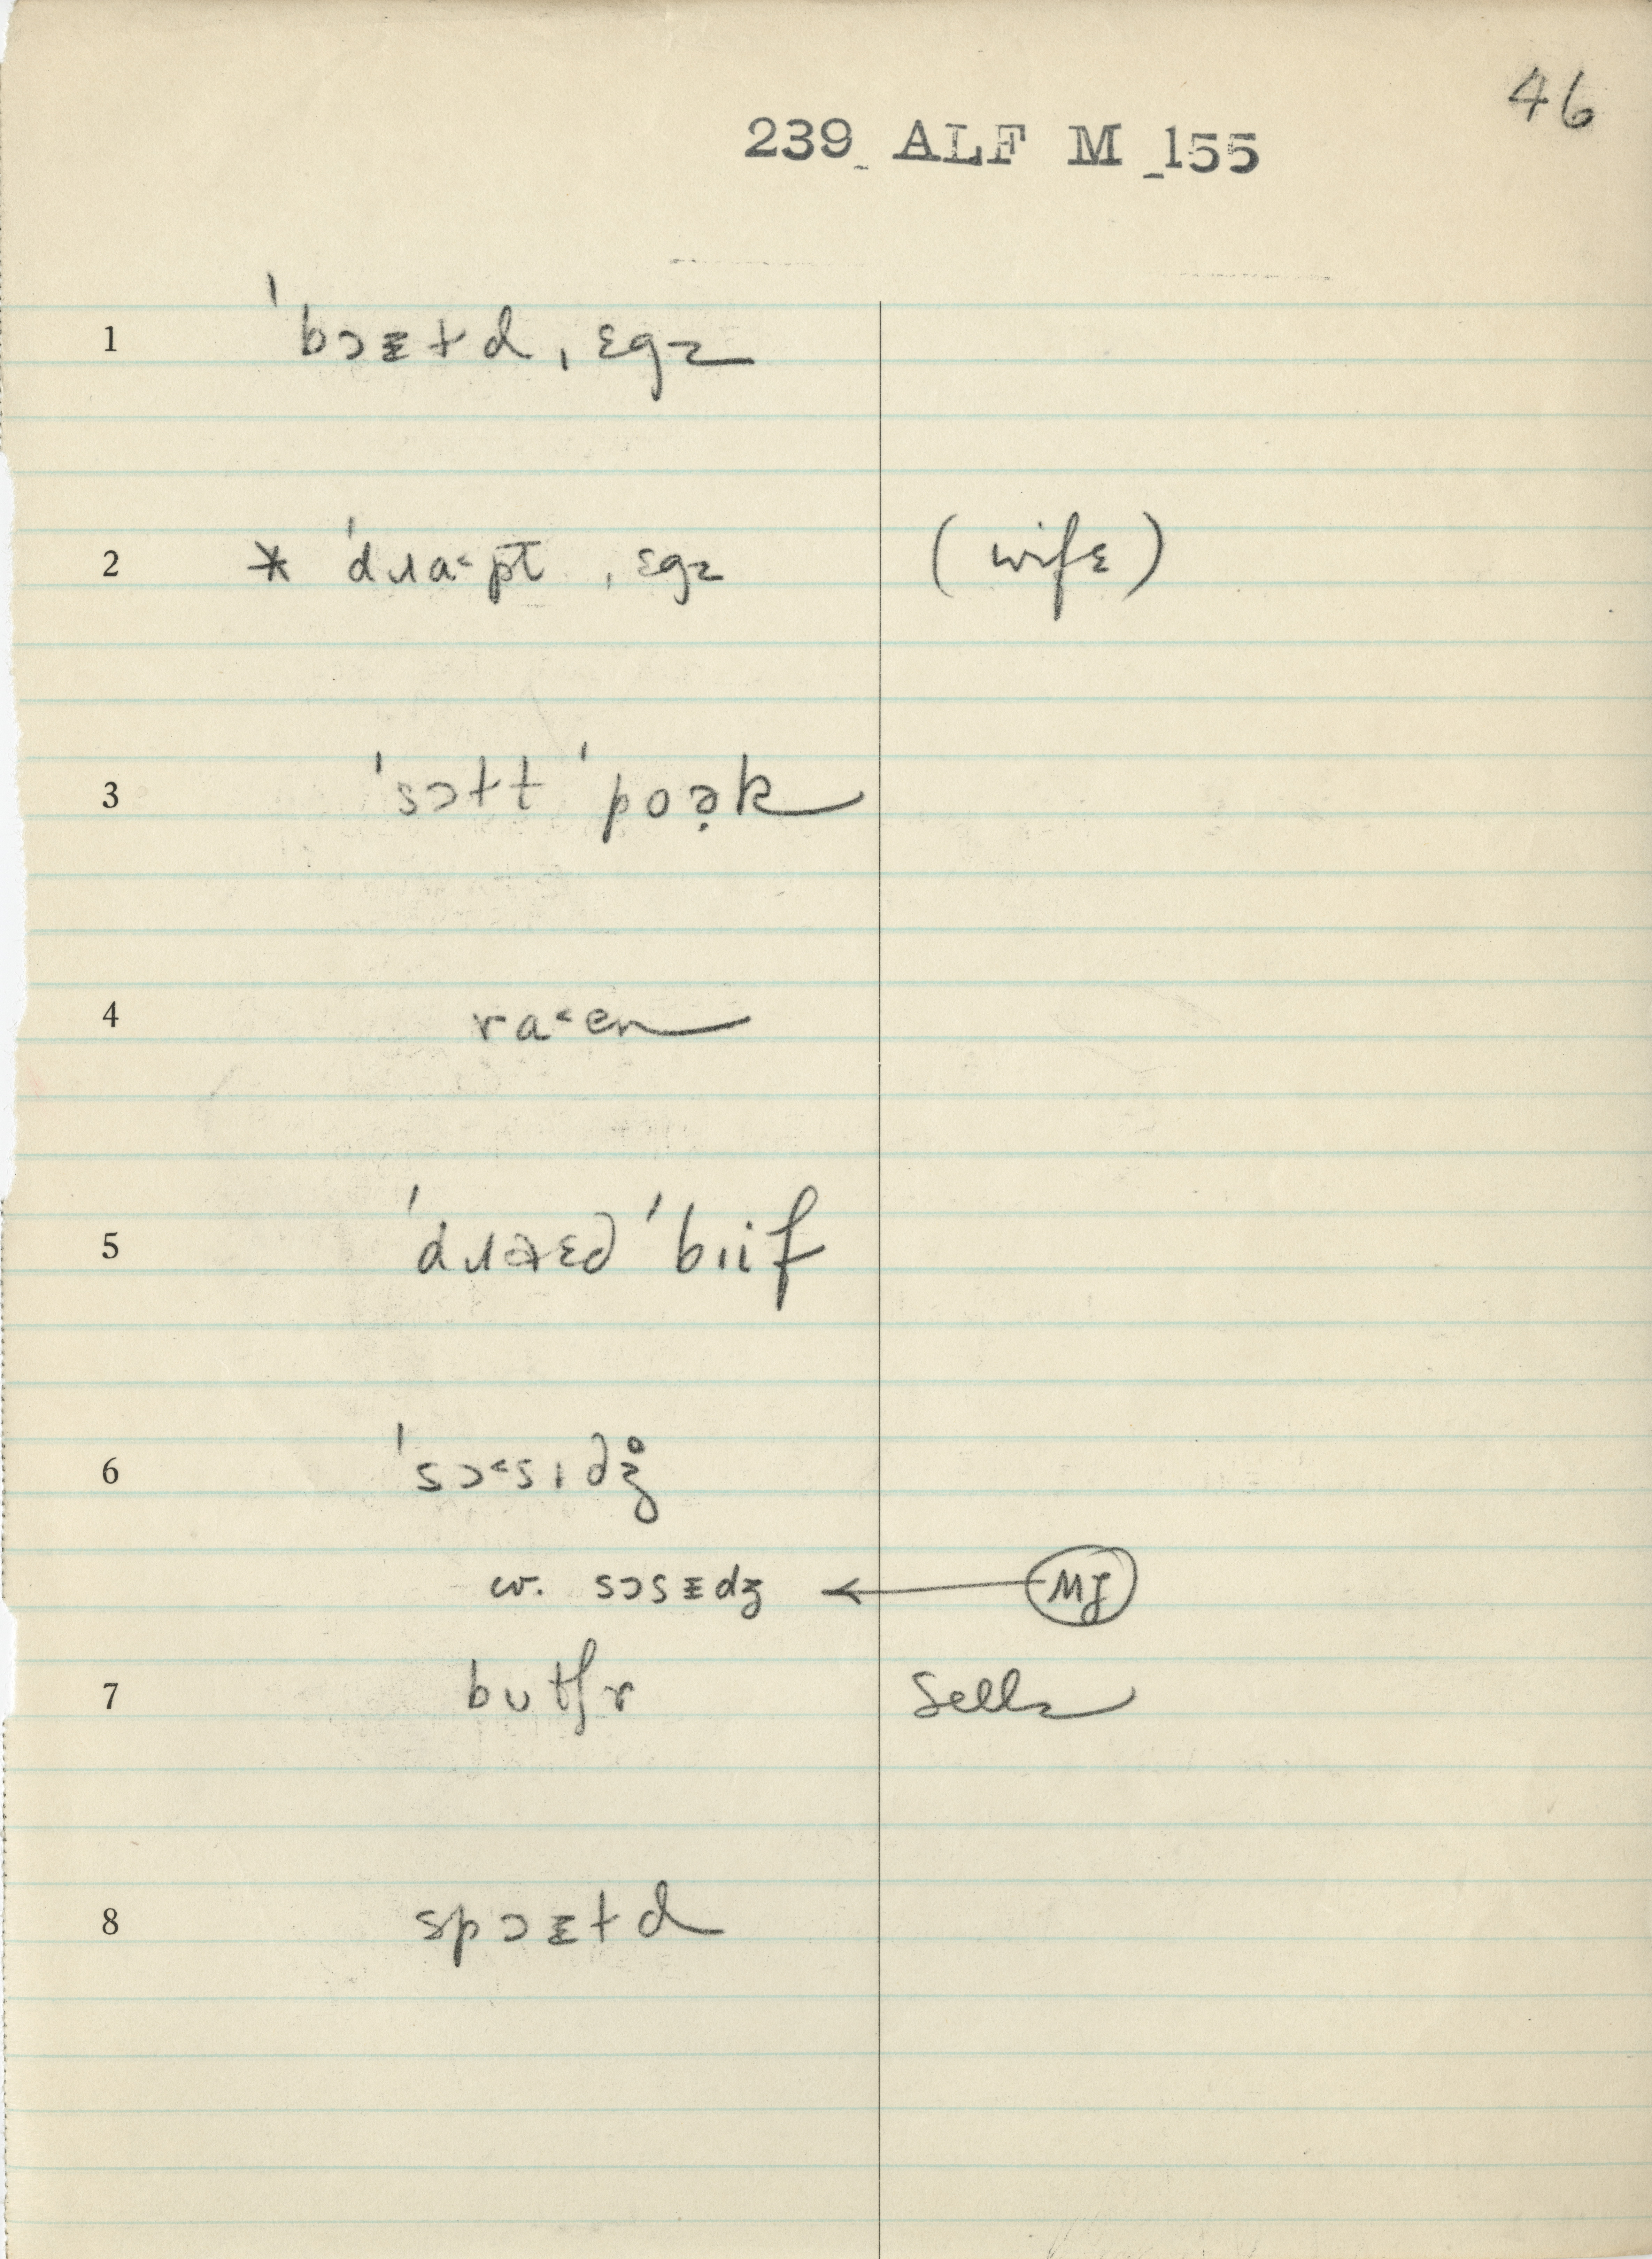 46
239 ALF M 155
1 ˈbɔᵻɫd ˌɛgz
2 * ˈdɹa˂pt ˌɛgz (wife)
3 ˈsɔɫt ˈpoə̣k
4 ra˂en
5 ˈdɹɛd ˈbɪif
6 ˈsɔ˂sɪdʒ̊
cv. sɔsᵻdʒ ← MJ
7 butʃr Sells
8 spɔᵻɫd